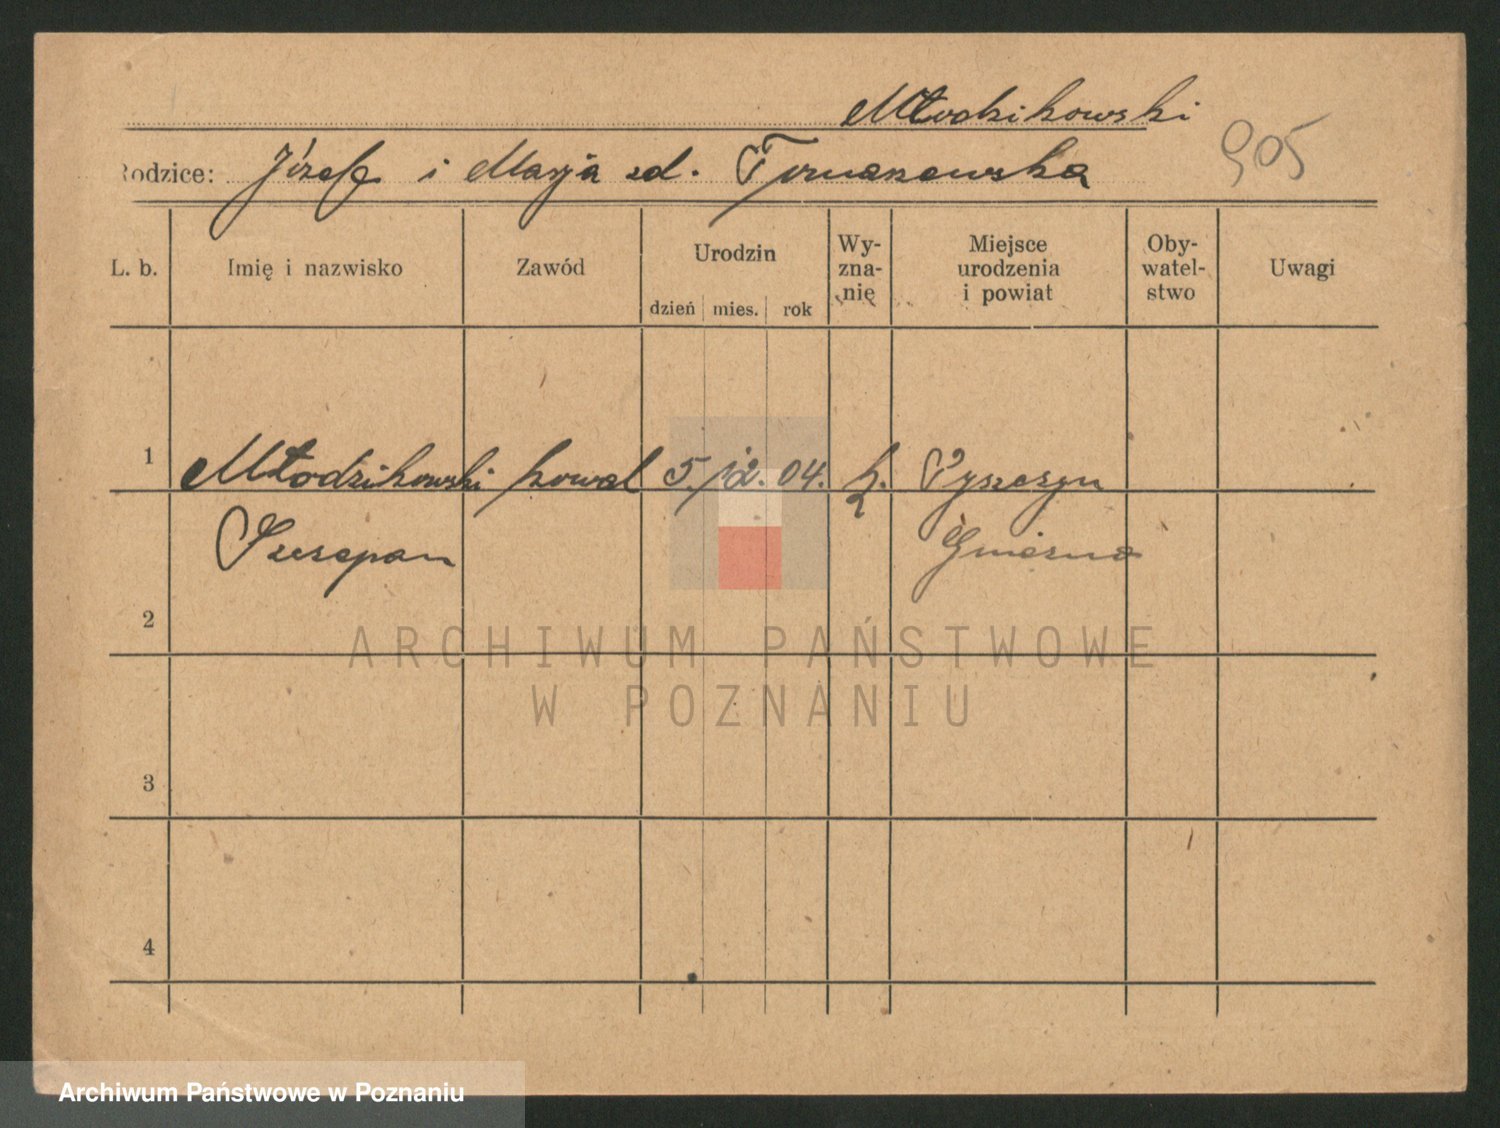 Młodzikowski
Rodzice: Józef i Marja zd. Tomaszewska
905
L. b. Imię i nazwisko Zawód Urodzin Wy-zna-nię Miejsce urodzenia i powiat Oby-watel-stwo Uwagi
dzień mies. rok
1 Młodzikowski kowal 5. 12. 04. k. Pyszczyn
Szczepan Gniezno
2
ARCHIWUM PAŃSTWOWE
W POZNANIU
3
4
Archiwum Państwowe w Poznaniu